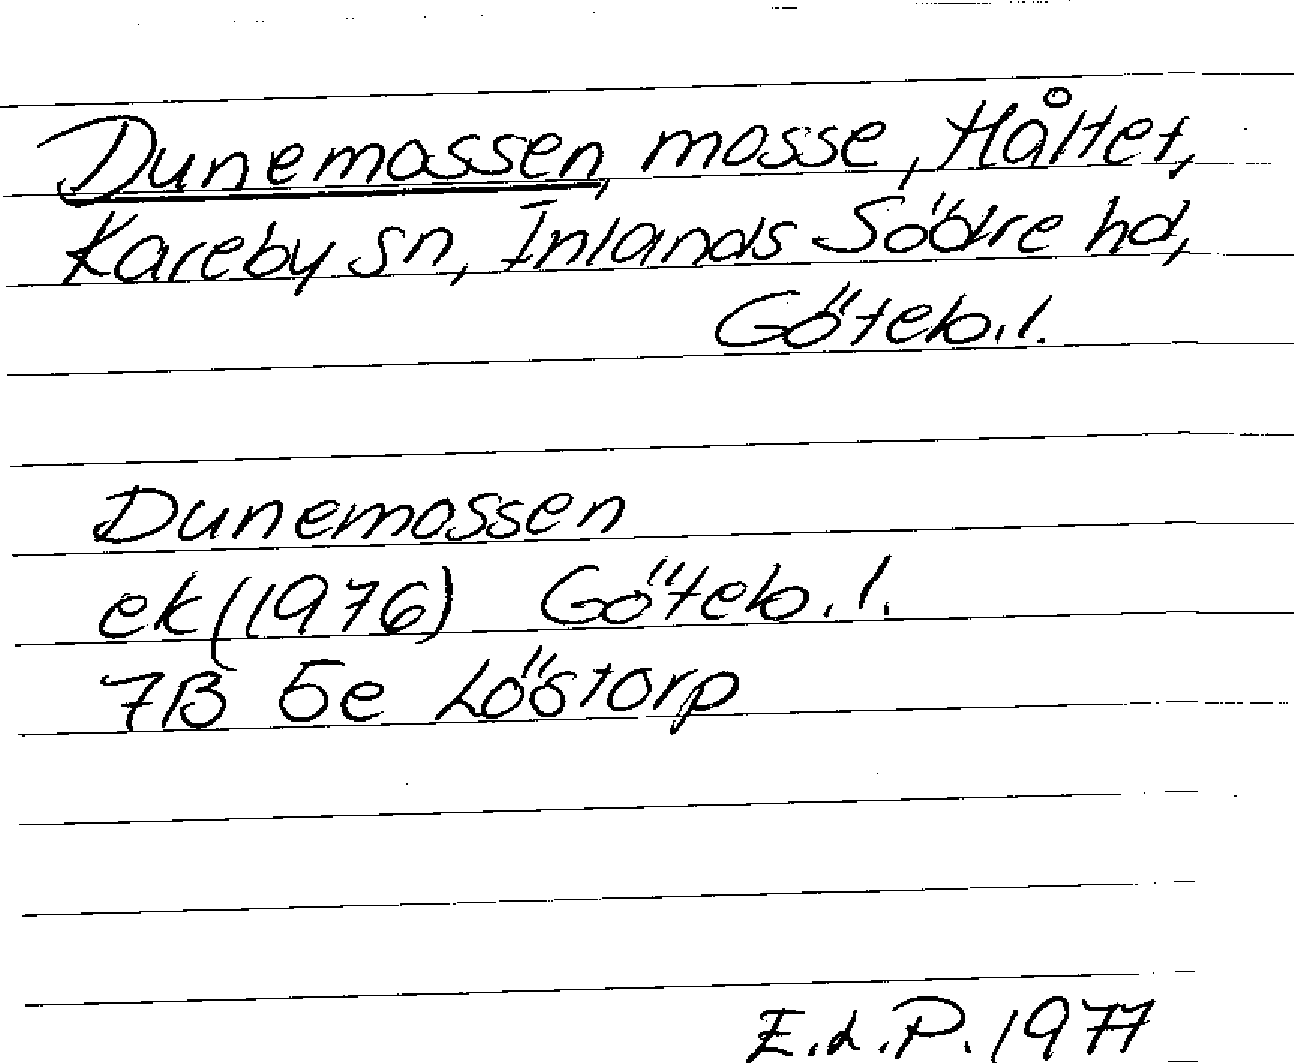 Dunemossen, mosse, Håltet,
Kareby sn, Inlands Södre hd,
Göteb.l.
Dunemossen
ek (1976) Göteb.l.
7B 5e Löstorp
E.d.P. 1977